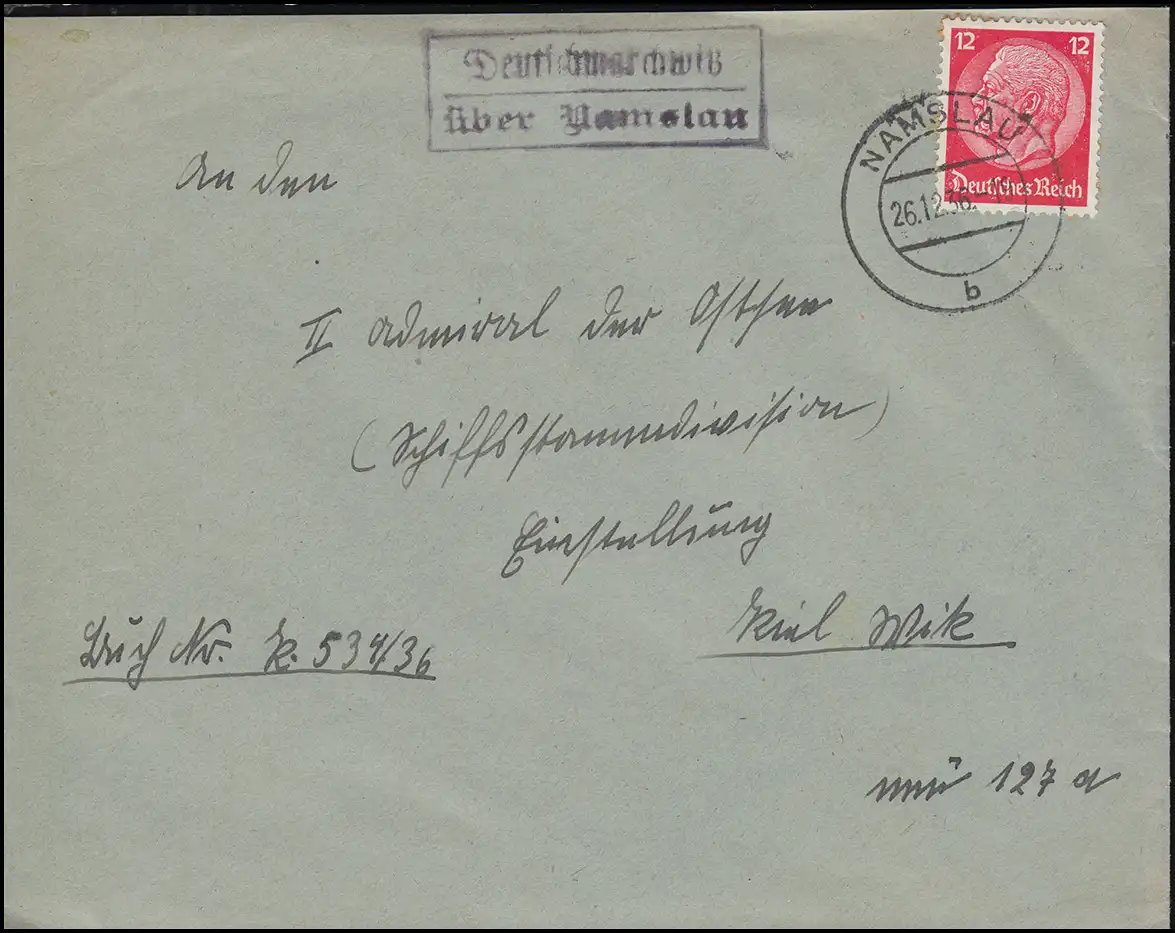 Deutschmarchwitz
über Namslau
12 12
Deutsches Reich
NAMSLAU
26.12.36.
b
An den
II Admiral der Ostsee
(Schiffsstammdivision)
Einstellung
Kiel Wik
Buch Nr. K. 534/36
127 a